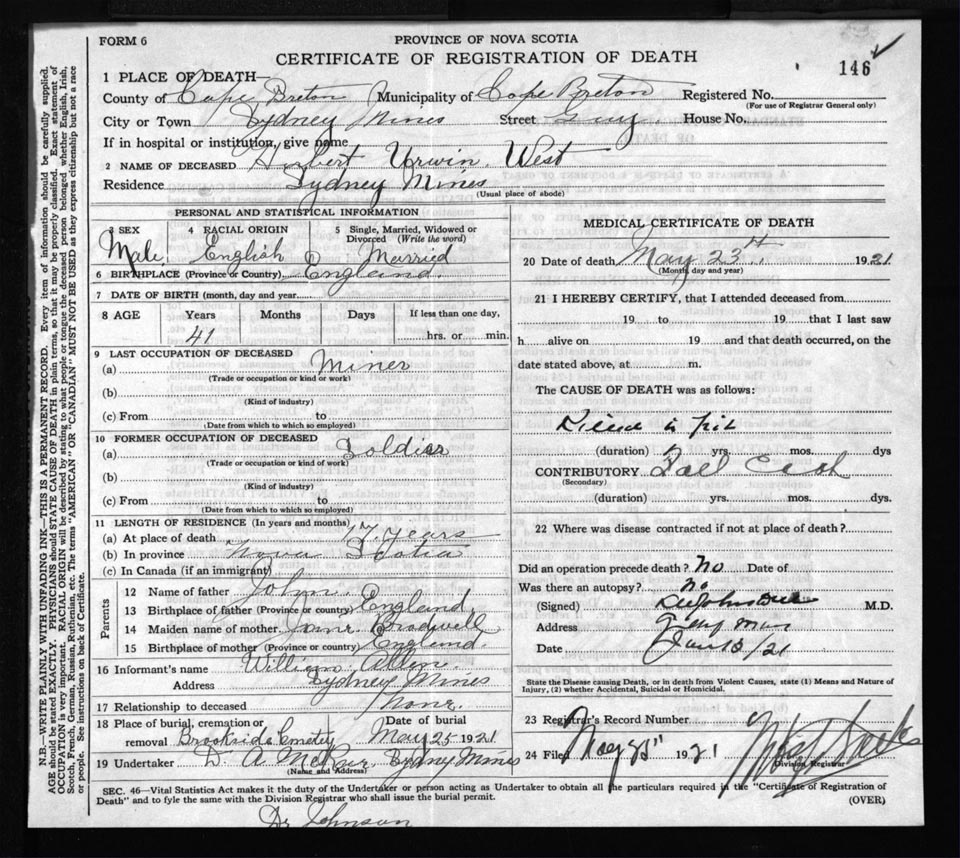 FORM 6
PROVINCE OF NOVA SCOTIA
CERTIFICATE OF REGISTRATION OF DEATH
146
1 PLACE OF DEATH—
County of Cape Breton Municipality of Cape Breton Registered No.
(For use of Registrar General only)
City or Town Sydney Mines Street House No.
If in hospital or institution, give name
2 NAME OF DECEASED Herbert Urwin West
Residence Sydney Mines
(Usual place of abode)
PERSONAL AND STATISTICAL INFORMATION
3 SEX Male 4 RACIAL ORIGIN English 5 Single, Married, Widowed or Divorced (Write the word) Married
6 BIRTHPLACE (Province or Country) England
7 DATE OF BIRTH (month, day and year
8 AGE Years 41 Months Days If less than one day,
hrs. or min.
9 LAST OCCUPATION OF DECEASED
(a) Miner
(Trade or occupation or kind or work)
(b)
(Kind of industry)
(c) From to
(Date from which to which so employed)
10 FORMER OCCUPATION OF DECEASED
(a) Soldier
(Trade or occupation or kind of work)
(b)
(Kind of industry)
(c) From to
(Date from which to which so employed)
11 LENGTH OF RESIDENCE (In years and months)
(a) At place of death 17 years
(b) In province Nova Scotia
(c) In Canada (if an immigrant)
Parents
12 Name of father John
13 Birthplace of father (Province or country) England
14 Maiden name of mother Jane Bradwell
15 Birthplace of mother (Province or country) England
16 Informant's name William Allen
Address Sydney Mines
17 Relationship to deceased None
18 Place of burial, cremation or removal Brookside Cemetery Date of burial May 25 1921
19 Undertaker D. A. Sydney Mines
(Name and Address)
MEDICAL CERTIFICATE OF DEATH
20 Date of death May 23rd 1921
(Month, day and year)
21 I HEREBY CERTIFY, that I attended deceased from
19 to 19 that I last saw
h alive on 19 and that death occurred, on the
date stated above, at m.
The CAUSE OF DEATH was as follows:
Killed in Pit
(duration) yrs. mos. dys
CONTRIBUTORY Fall
(Secondary)
(duration) yrs. mos. dys.
22 Where was disease contracted if not at place of death?
Did an operation precede death? No Date of
Was there an autopsy? No
(Signed) M.D.
Address
Date /21
State the Disease causing Death, or in death from Violent Causes, state (1) Means and Nature of
Injury, (2) whether Accidental, Suicidal or Homicidal.
23 Registrar's Record Number
24 Filed May 1921
Division Registrar
SEC. 46—Vital Statistics Act makes it the duty of the Undertaker or person acting as Undertaker to obtain all the particulars required in the "Certificate of Registration of
Death" and to fyle the same with the Division Registrar who shall issue the burial permit.
(OVER)
Dr Johnson
N.B.—WRITE PLAINLY WITH UNFADING INK—THIS IS A PERMANENT RECORD. Every item of information should be carefully supplied.
AGE should be stated EXACTLY. PHYSICIANS should STATE CAUSE OF DEATH in plain terms, so that it may be properly classified. Exact statement of
OCCUPATION is very important. RACIAL ORIGIN will be described by stating to what people or tongue the deceased person belonged whether English, Irish,
Scotch, French, German, Russian, Ruthenian, etc. The terms "AMERICAN" OR "CANADIAN" MUST NOT BE USED as they express citizenship but not a race
or people. See instructions on back of Certificate.